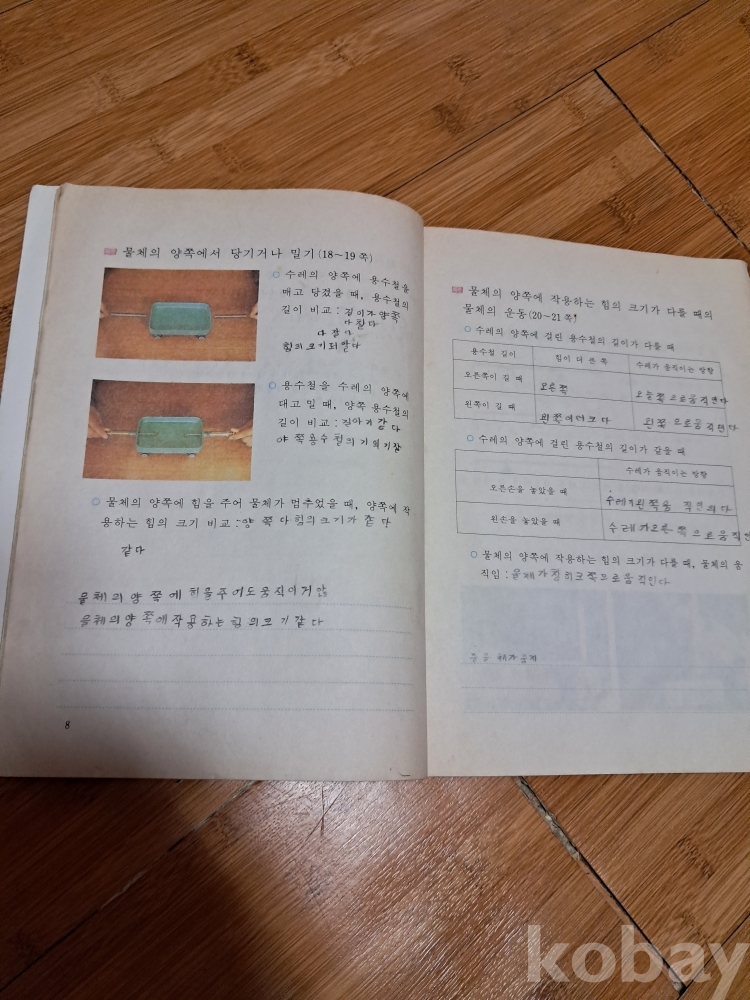 물체의 양쪽에서 당기거나 밀기(18~19 쪽)
수레의 양쪽에 용수철을
매고 당겼을 때, 용수철의
길이 비교: 길이가 양쪽
다
힘의크기되
용수철을 수레의 양쪽에
대고 밀 때, 양쪽 용수철의
길이 비교:
양쪽용수철의
물체의 양쪽에 힘을 주어 물체가 멈추었을 때, 양쪽에 작
용하는 힘의 크기 비교: 양 쪽 다 힘의크기가 같다
같다
물체의 양 쪽에 힘을주어도움직이거
물체의 양 쪽에작용하는 힘의크기 같다
8
물체의 양쪽에 작용하는 힘의 크기가 다를 때의
물체의 운동(20~21 쪽)
수레의 양쪽에 걸린 용수철의 길이가 다를 때
용수철 길이 힘이 더 큰 쪽 수레가 움직이는 방향
오른쪽이 길 때 오른쪽 쪽으로움직인다
왼쪽이 길 때 왼쪽이더크다 왼쪽 으로움직인다
수레의 양쪽에 걸린 용수철의 길이가 같을 때
수레가 움직이는 방향
오른손을 놓았을 때 왼쪽
왼손을 놓았을 때 수레가오른 쪽으로움직인
물체의 양쪽에 작용하는 힘의 크기가 다를 때, 물체의 움
직임: 물체가 쪽으로움직인다
kobay